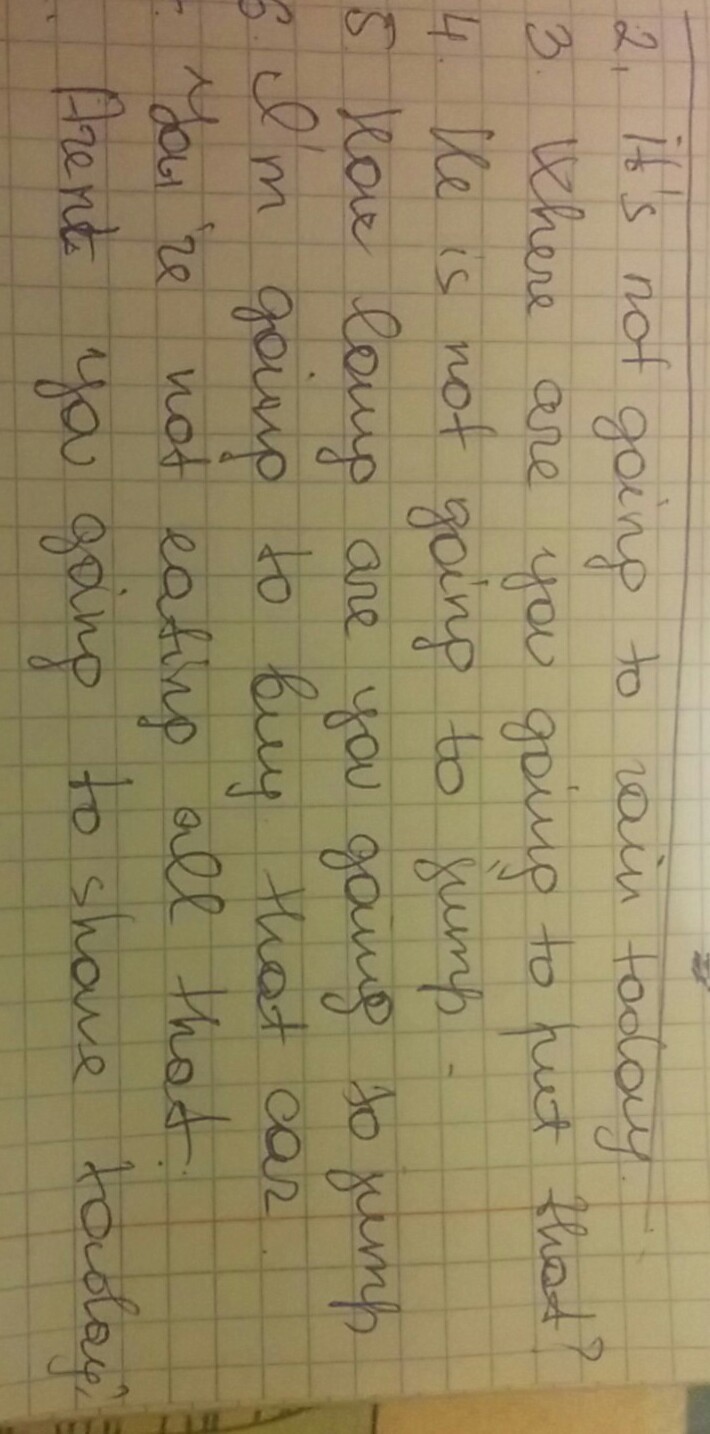 2. it's not going to rain today.
3. Where are you going to put that?
4. He is not going to jump.
5 How long are you going to jump
6. I'm going to buy that car.
You're not eating all that.
Arent you going to shave today?